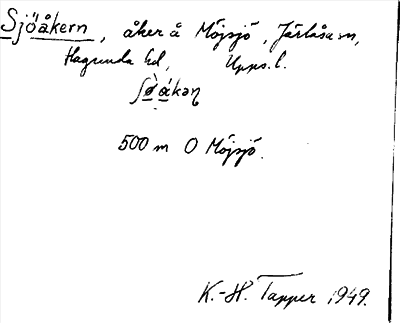 Sjöåkern, åker å Möjsjö, Järlåsa sn,
Hagunda hd, Upps. l.
ʃø̀åkəɳ
500 m O Möjsjö.
K.-H. Tapper 1949.